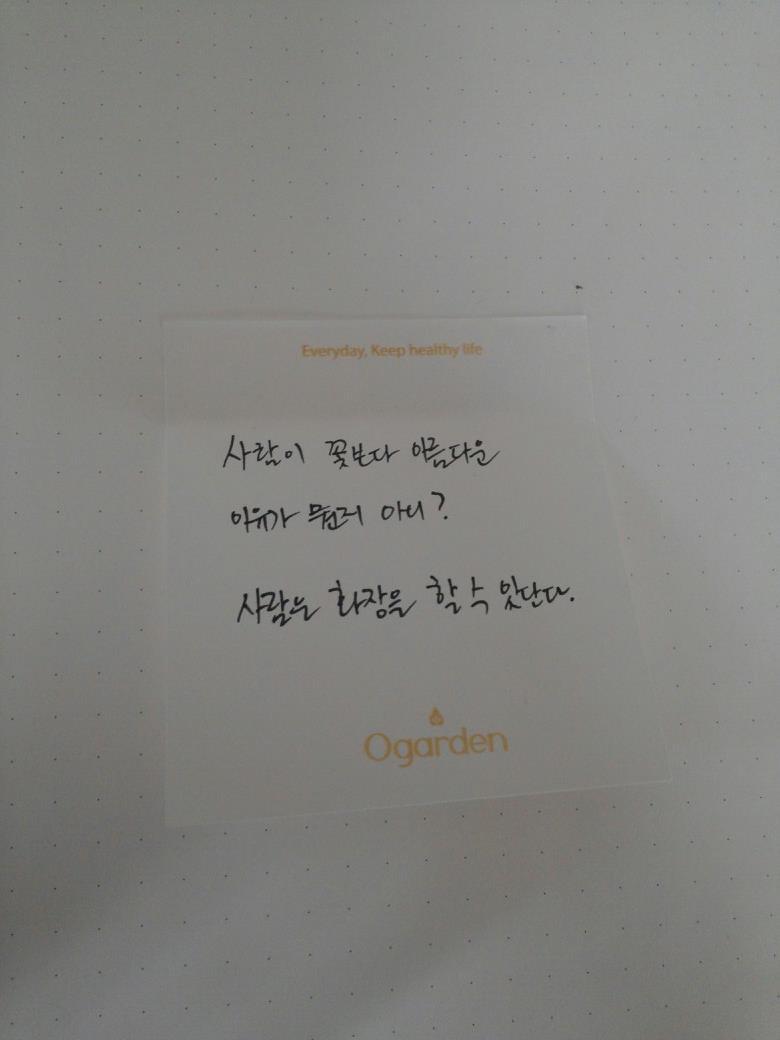 Everyday, Keep healthy life
사람이 꽃보다 아름다운
이유가 뭔지 아니?
사람은 화장을 할 수 있단다.
Ogarden